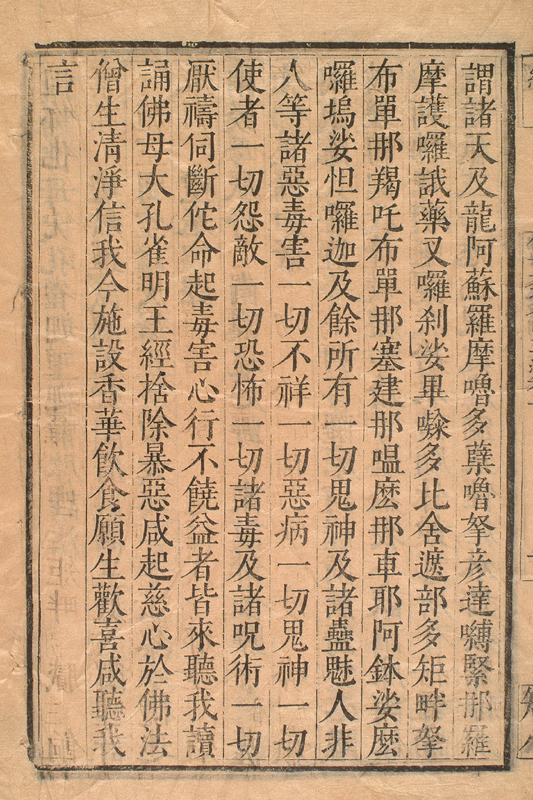 謂諸天及龍阿蘇羅摩嚕多蘗嚕拏彥達嚩緊那羅
摩護囉誐藥叉囉剎娑畢㘑多比舍遮部多矩畔拏
布單那羯吒布單那塞建那嗢麼那車耶阿鉢娑麼
囉塢娑怛囉迦及餘所有一切鬼神及諸蠱魅人非
人等諸惡毒害一切不祥一切惡病一切鬼神一切
使者一切怨敵一切恐怖一切諸毒及諸呪術一切
厭禱伺斷佗命起毒害心行不饒益者皆來聽我讀
誦佛母大孔雀明王經捨除暴惡咸起慈心於佛法
僧生清淨信我今施設香華飲食願生歡喜咸聽我
言